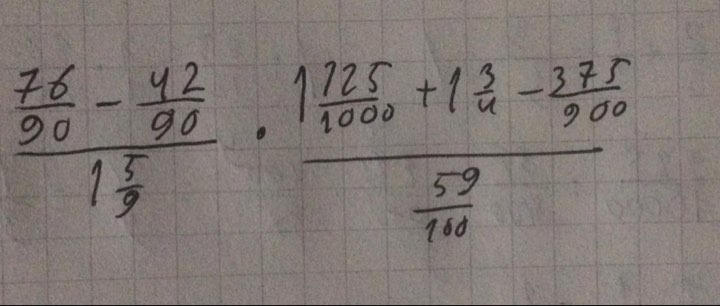 76/90 - 42/90 · 1 125/1000 + 1 3/4 - 375/900
1 5/9 59/100